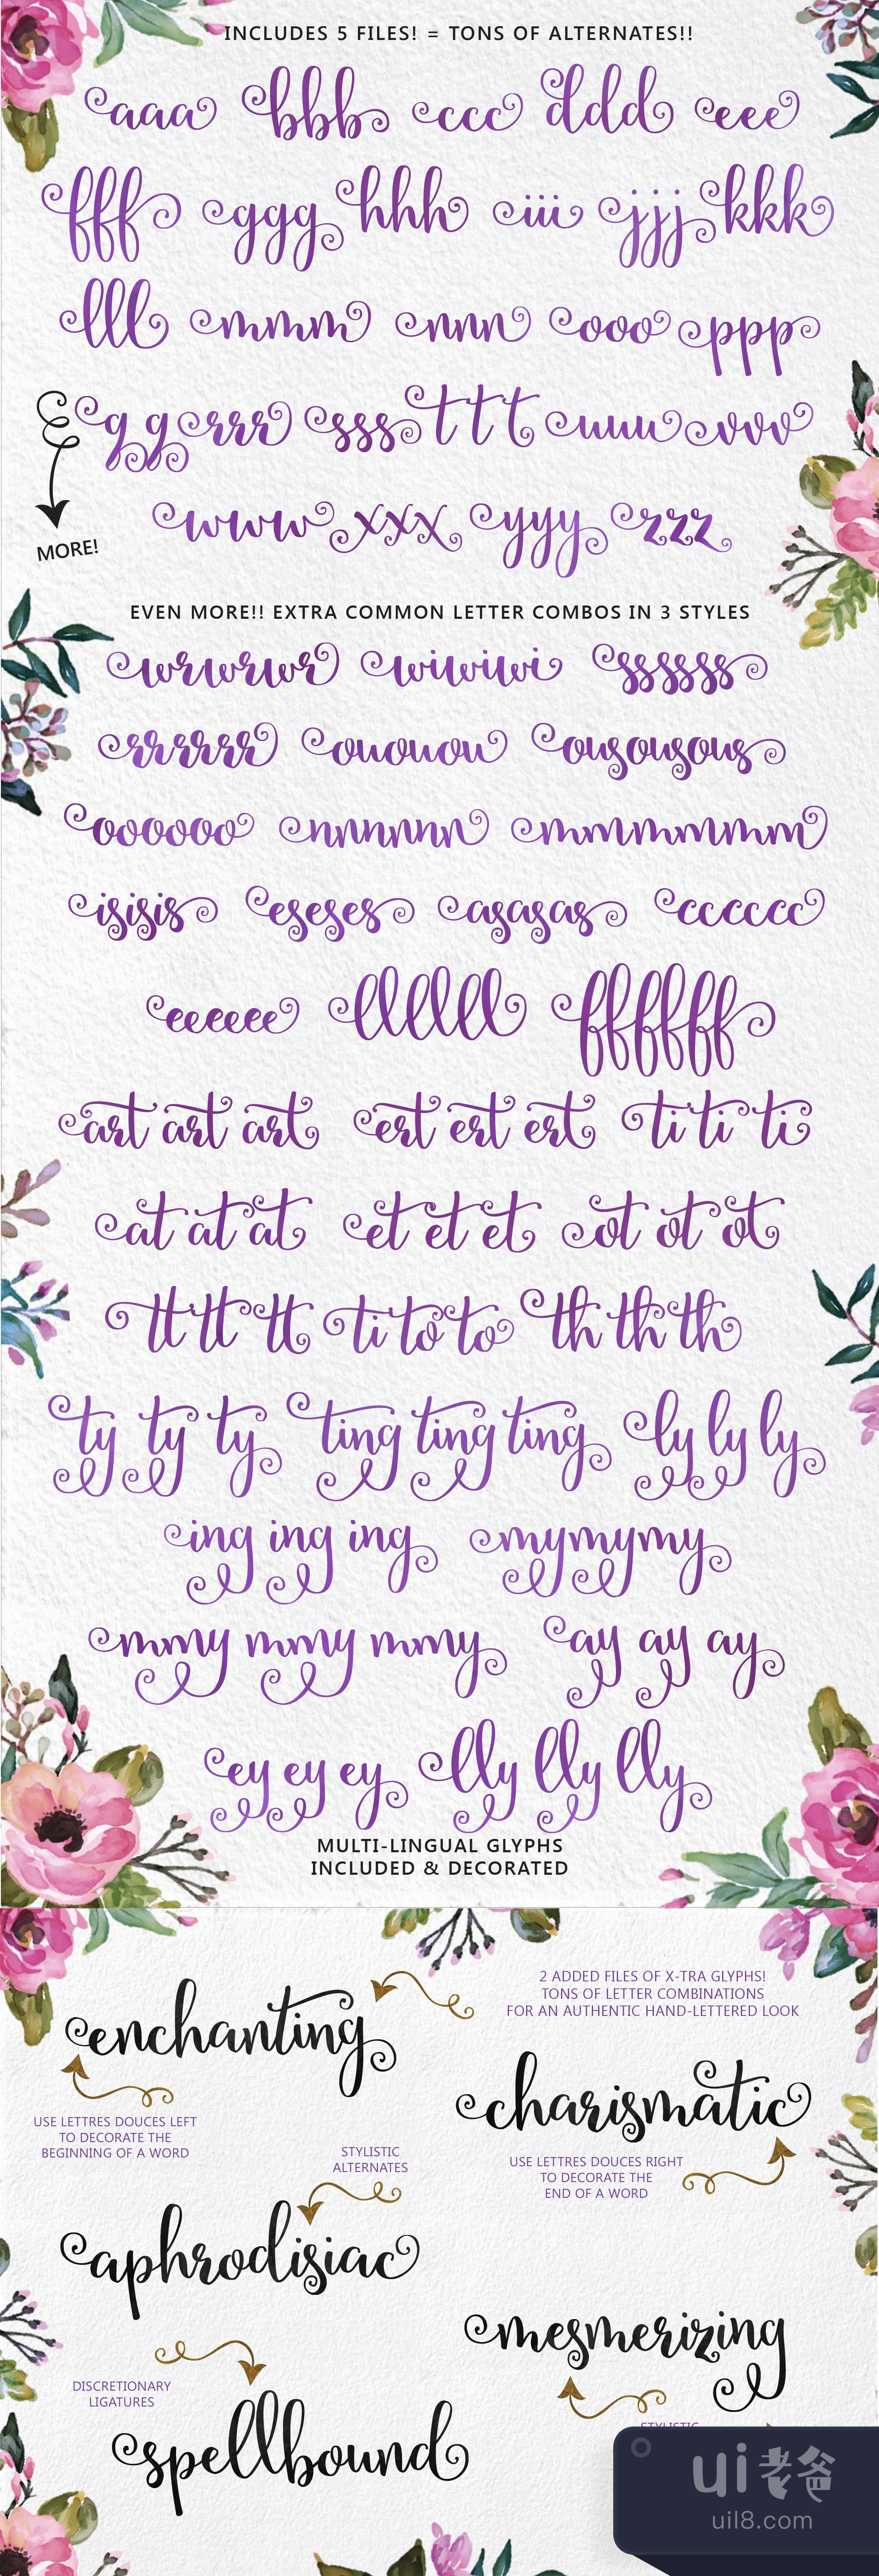 INCLUDES 5 FILES! = TONS OF ALTERNATES!!
aaa bbb ccc ddd eee
fff ggg hhh iii jjj kkk
lll mmm nnn ooo ppp
g g rrr sss t t t uuu vvv
www xxx yyy zzz
MORE!
EVEN MORE!! EXTRA COMMON LETTER COMBOS IN 3 STYLES
wrwrwr wiwiwi ssssss
rrrrrr ououou ousousous
oooooo nnnnnn mmmmmm
isisis eseses asasas cccccc
eeeeee llllll ffffff
art art art ert ert ert ti ti ti
at at at et et et ot ot ot
tt tt tt ti to to th th th
ty ty ty ting ting ting ly ly ly
ing ing ing mymymy
mmy mmy mmy ay ay ay
ey ey ey lly lly lly
MULTI-LINGUAL GLYPHS
INCLUDED & DECORATED
2 ADDED FILES OF X-TRA GLYPHS!
TONS OF LETTER COMBINATIONS
FOR AN AUTHENTIC HAND-LETTERED LOOK
enchanting
USE LETTRES DOUCES LEFT
TO DECORATE THE
BEGINNING OF A WORD
charismatic
USE LETTRES DOUCES RIGHT
TO DECORATE THE
END OF A WORD
STYLISTIC
ALTERNATES
aphrodisiac
mesmerizing
DISCRETIONARY
LIGATURES
STYLISTIC
spellbound
ui老爸
uil8.com